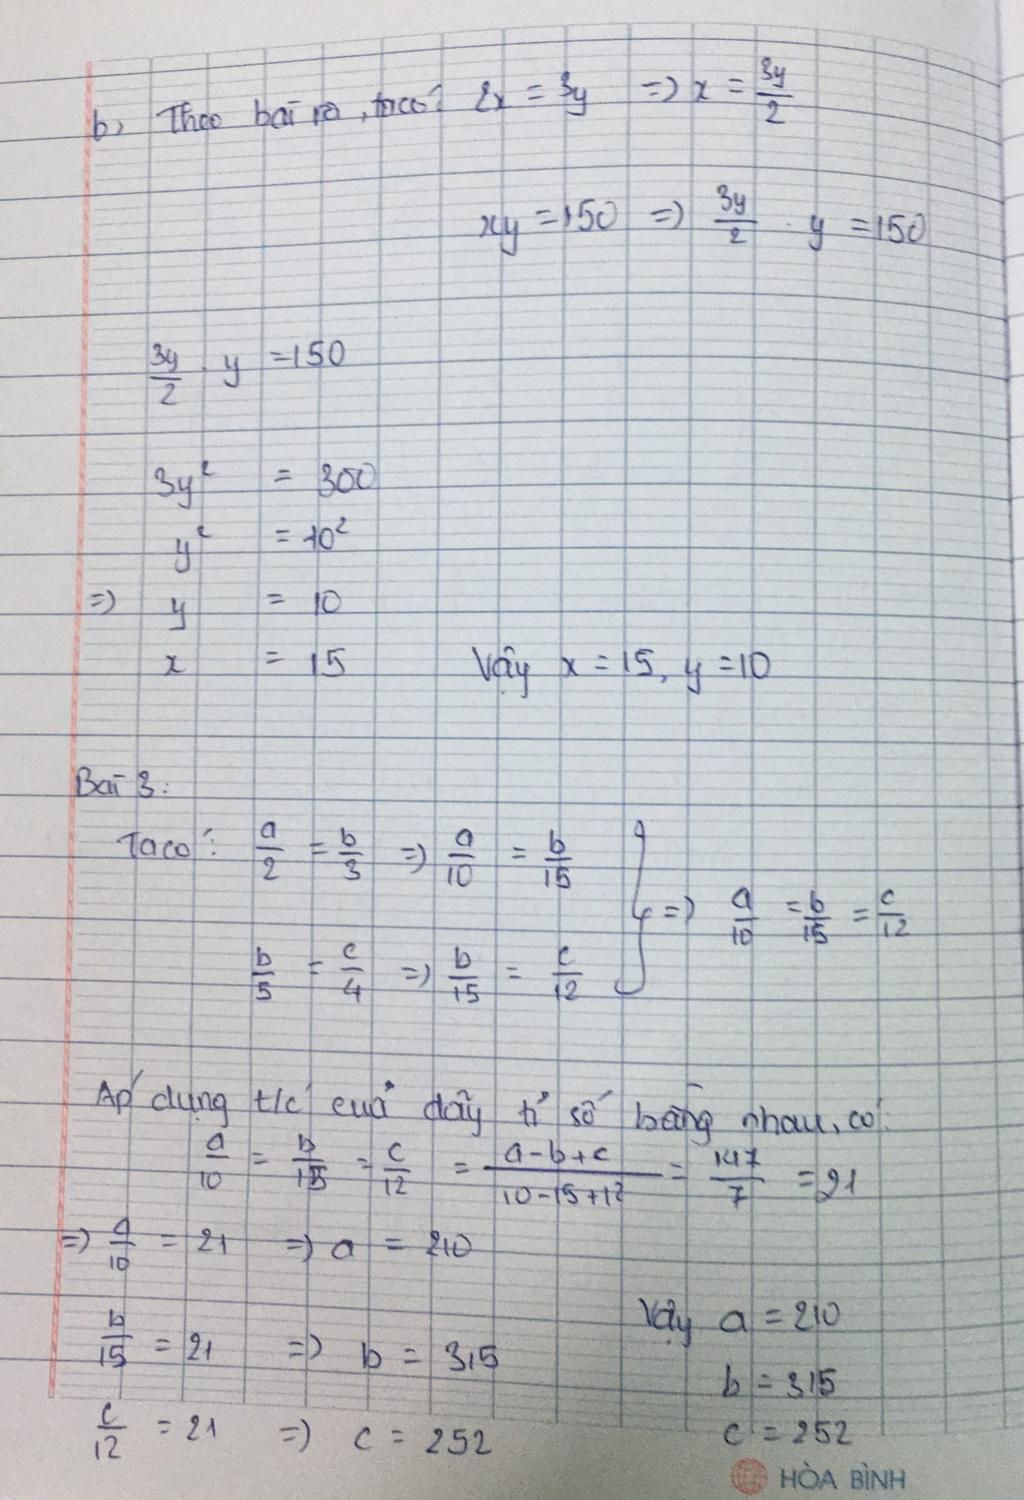 b, Theo bài ra, ta có: 2x = 3y => x = 3y/2
xy = 150 => 3y/2 . y = 150
3y/2 . y = 150
3y² = 300
y² = 10²
=> y = 10
x = 15 Vậy x = 15, y = 10
Bài 3:
Ta có: a/2 = b/3 => a/10 = b/15
b/5 = c/4 => b/15 = c/12 } => a/10 = b/15 = c/12
Áp dụng t/c của dãy tỉ số bằng nhau, có:
a/10 = b/15 = c/12 = a-b+c/10-15+12 = 147/7 = 21
=> a/10 = 21 => a = 210
b/15 = 21 => b = 315
c/12 = 21 => c = 252
Vậy a = 210
b = 315
c = 252
HÒA BÌNH